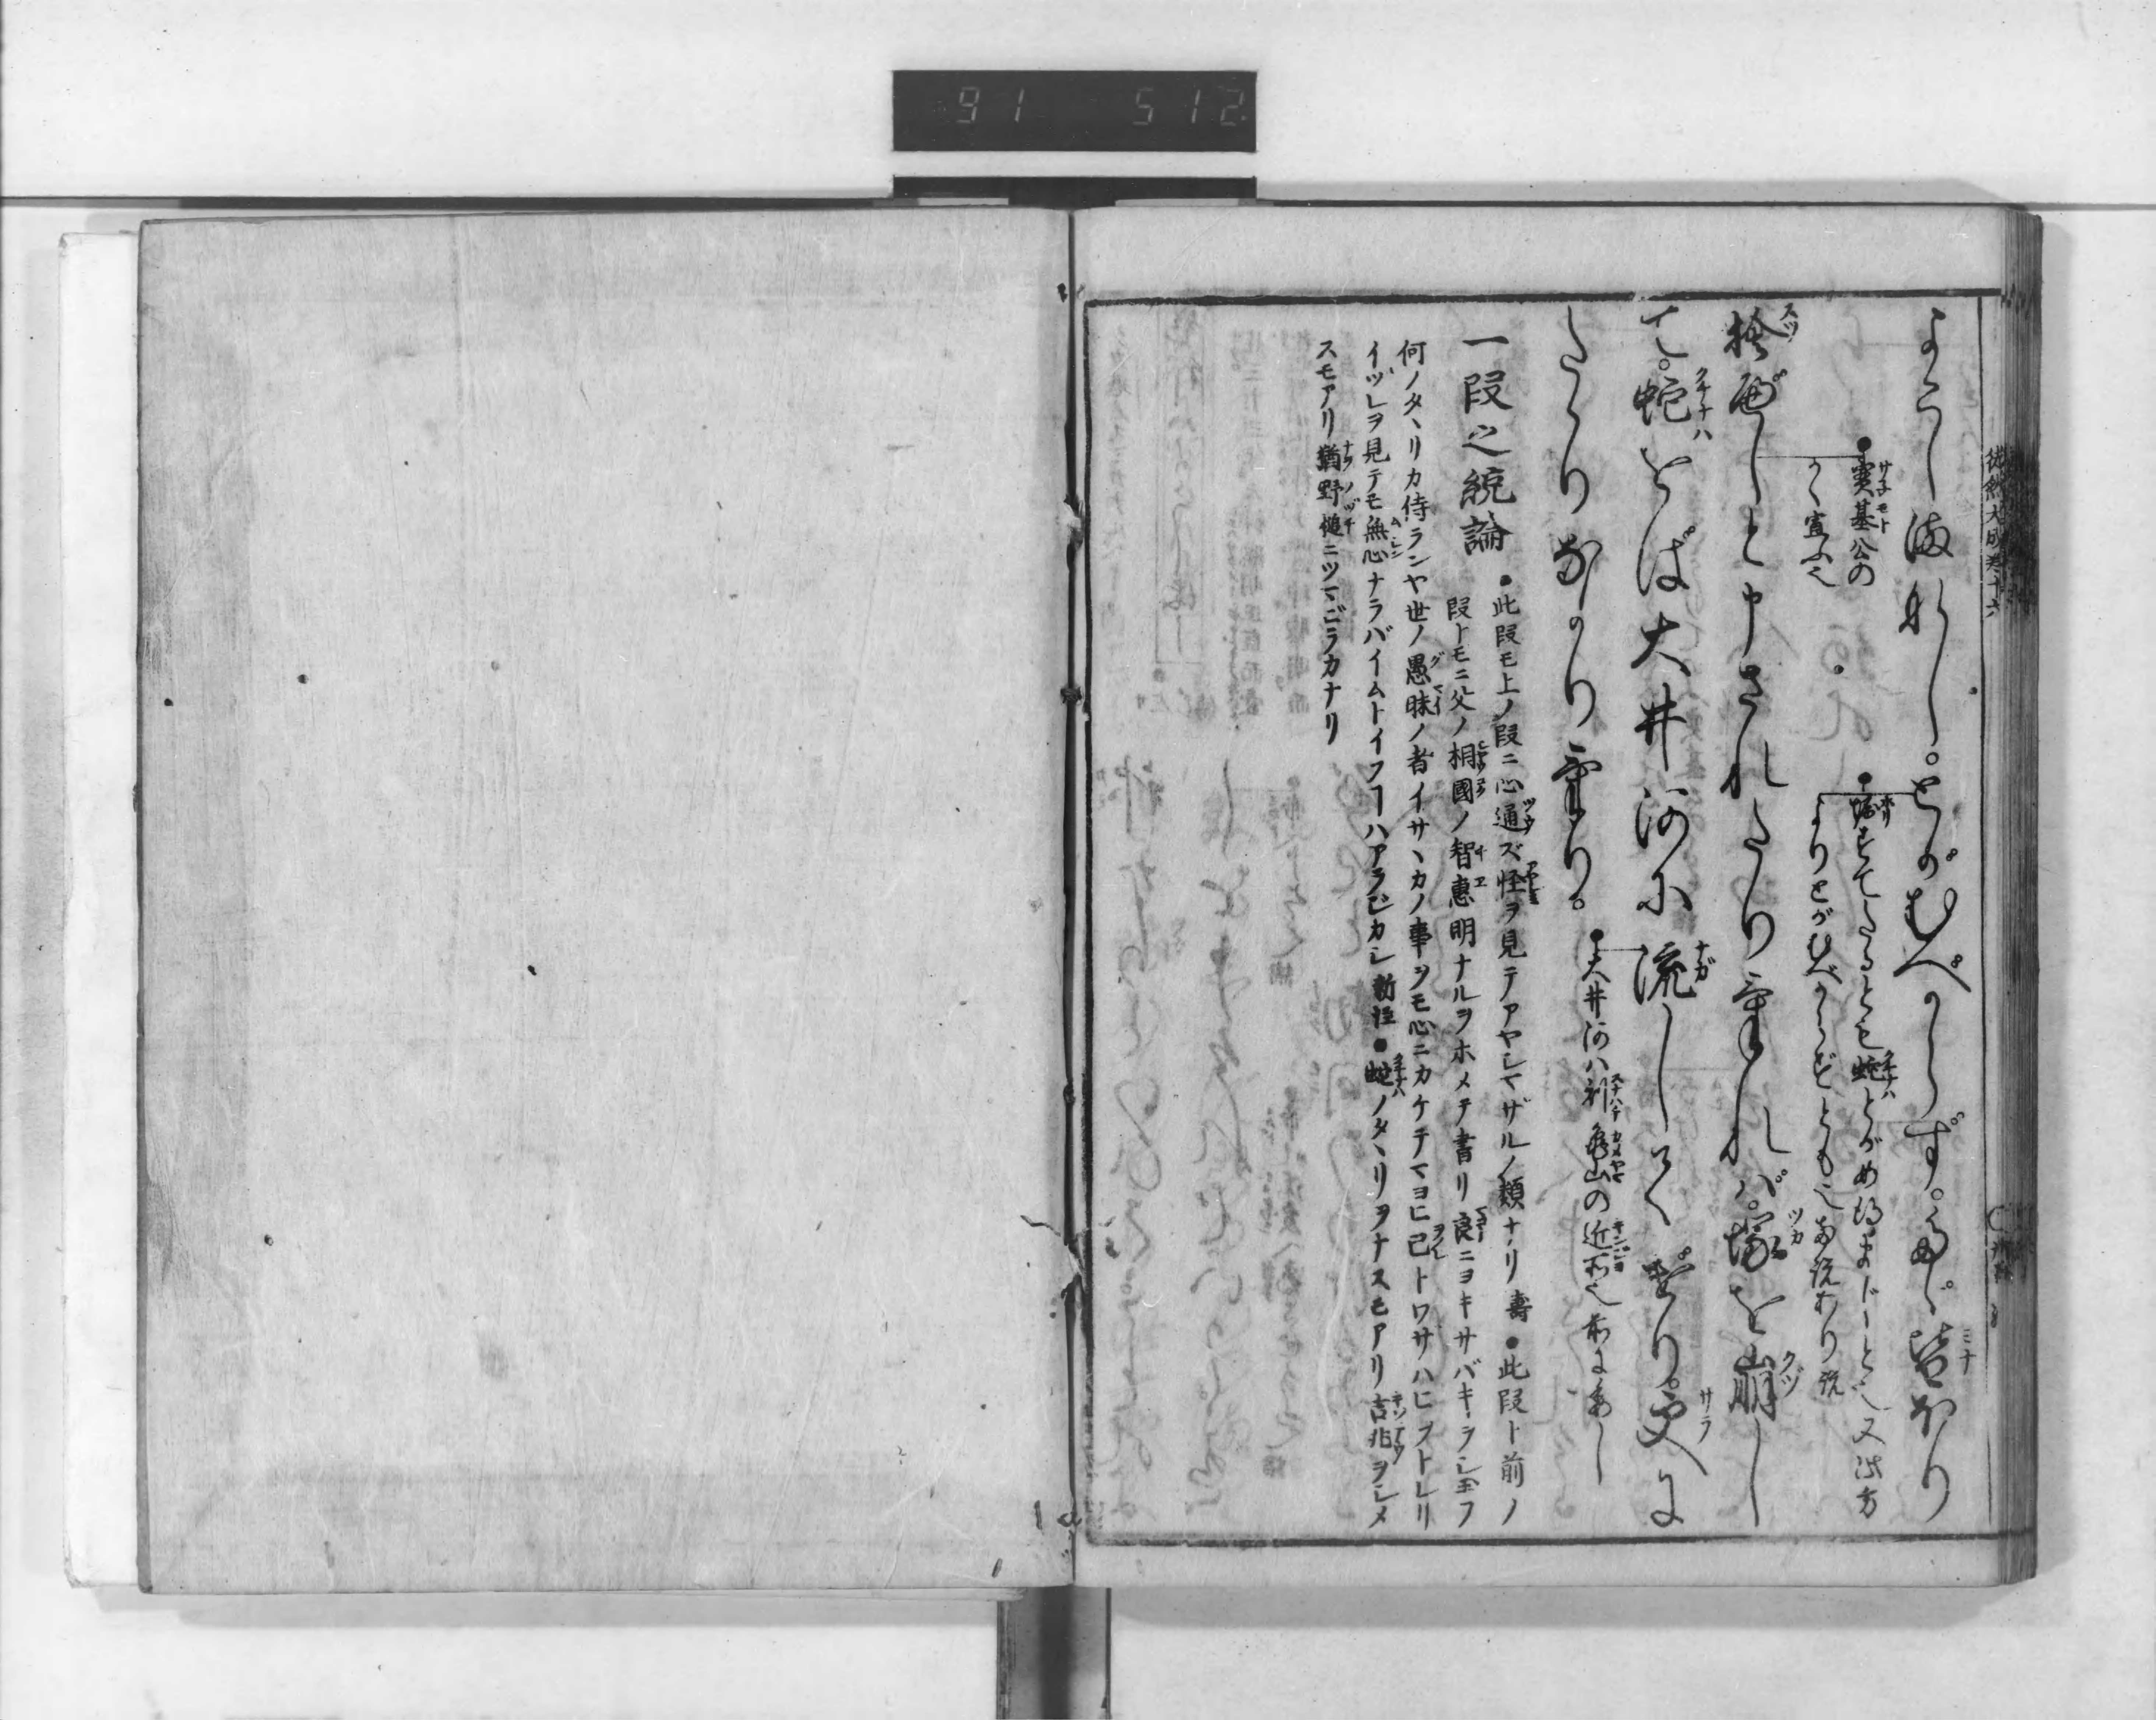 91 512
徒然大成巻十六
よこしまなし。とがむべからず。たゞ皆ほり
●実基公の
かく宣ふ也
●堀すてたるとも蛇とがめ得まじーと也又此方
よりとがむべからずとも也両説あり
捨べしと申されたりければ。塚を崩し
て。蛇をば大井河に流してげり。更に
たゝりなかりけり。
●大井河ハ則亀山の近所也前にあらし
一段之統論
●此段モ上ノ段ニ心通ズ怪ヲ見テアヤシマザルノ類ナリ 寿 ●此段ト前ノ
段トモニ父ノ相國ノ智恵明ナルヲホメテ書リ良ニヨキサバキナラシ玉フ
何ノタヽリカ侍ランヤ世ノ愚昧ノ者イサヽカノ事ヲモ心ニカケテマヨヒ己トワザハヒヲトレリ
イヅレヲ見テモ無心ナラバイムトイフヿハアラジカシ 新註 ●蛇ノタヽリヲナスモアリ吉兆ヲシメ
スモアリ猶野槌ニツマビラカナリ